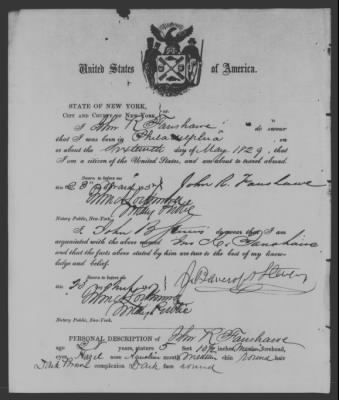 United States of America.
STATE OF NEW YORK,
CITY AND COUNTY OF NEW-YORK, ss.
I John R Fanshawe do swear
that I was born in Philadelphia on
or about the day of May 1829, that
I am a citizen of the United States, and am about to travel abroad.
Sworn to before me
John R. Fanshawe
Notary Public
Notary Public, New-York.
I John B do swear that I am
acquainted with the above named Jno R. Fanshawe
and that the facts above stated by him are true to the best of my know-
ledge and belief.
Sworn to before me
Notary Public
Notary Public, New-York.
PERSONAL DESCRIPTION of John R Fanshawe
age years, stature 5 feet inches, forehead,
eyes, Hazel nose Aquiline mouth Medium chin round hair
Dark complexion Dark face round